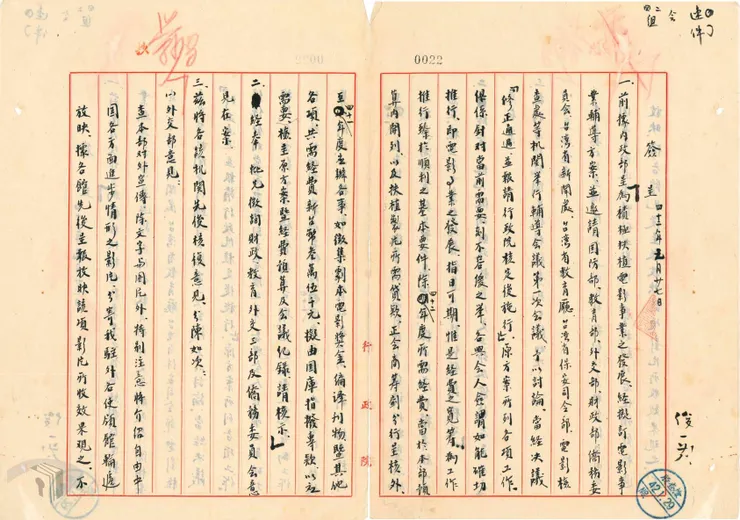 速件
會
二組
0022
簽 呈 四十二年元月廿七日
一、前據內政部呈為積極扶植電影事業之發展、經擬訂電影事
業輔導方案、並邀請國防部、教育部、外交部、財政部、僑務委
員會、台灣省新聞處、台灣省教育廳、台灣省保安司令部、電影檢
查處等機關舉行輔導會議第一次會議、予以討論、當經決議
「修正通過、並報請行政院核定後施行」、原方案所列各項工作、
係針對當前需要、刻不容緩之舉、各與會人僉謂如能確切
推行、則電影事業之發展、指日可期、惟是經費之寬籌、為工作
推行臻於順利之基本要件、除 年度所需經費、當於本部預
算內開列、以及扶植製片所需貸款、正會商籌劃、另行呈核外、
至四十二年度應辦各事、如徵集劇本電影獎金、編譯刊物暨其他
各項、共需經費新台幣叁萬伍千元、擬由國庫指撥專款、以應
需要、檢呈原方案暨經費預算及會議紀錄、請核示」
二、經奉 批先徵詢財政、教育、外交三部及僑務委員會意
見在案、
三、茲將各該機關先後核復意見、分陳如次：
(1)外交部意見
查本部對外宣傳、除文字與圖片外、特別注意將介紹自由中
國各方面進步情形之影片、分寄我駐外各使領館輪迴
放映、據各館先後呈報放映該項影片所收效果觀之、不
行政院
42.1.29